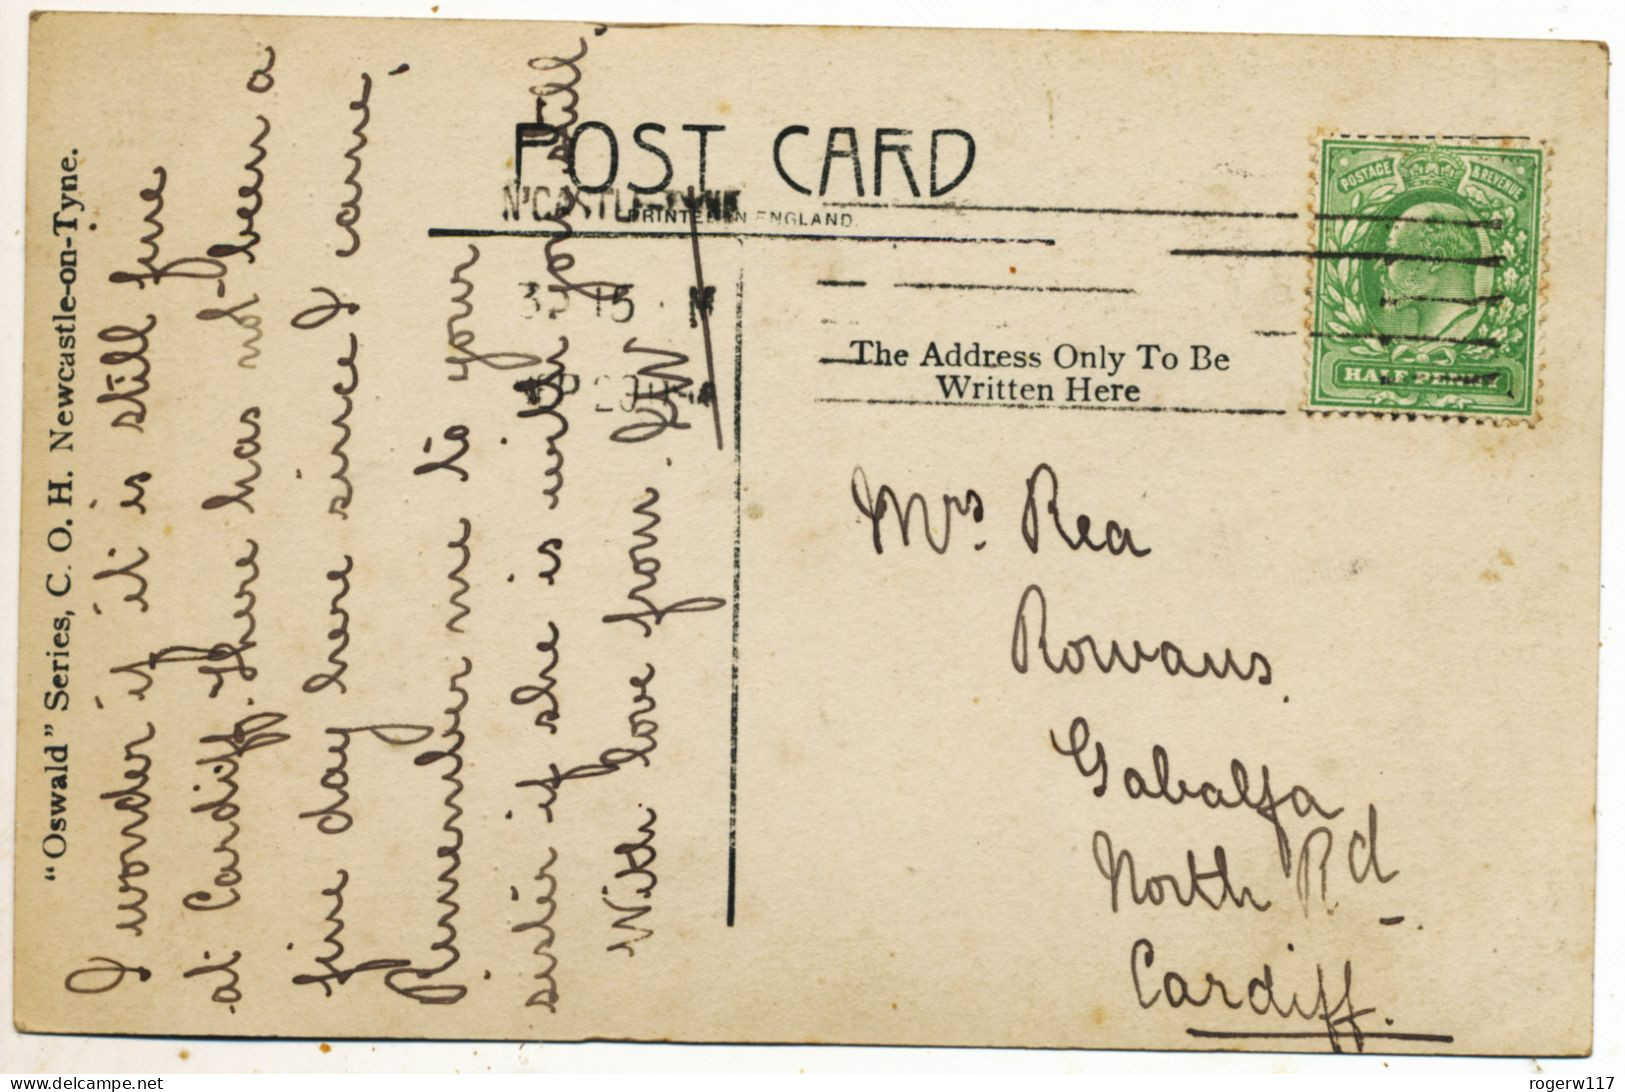 "Oswald" Series, C. O. H. Newcastle-on-Tyne.
I wonder if it is still fine
at Cardiff. There has not been a
fine day here since I came.
Remember me to your
sister if she is with you still.
With love from
POST CARD
N'CASTLE-TYNE
PRINTED IN ENGLAND.
POSTAGE & REVENUE
HALF PENNY
The Address Only To Be
Written Here
Mrs. Rea
Rowans.
Gabalfa
North Rd.
Cardiff.
delcampe.net
rogerw117